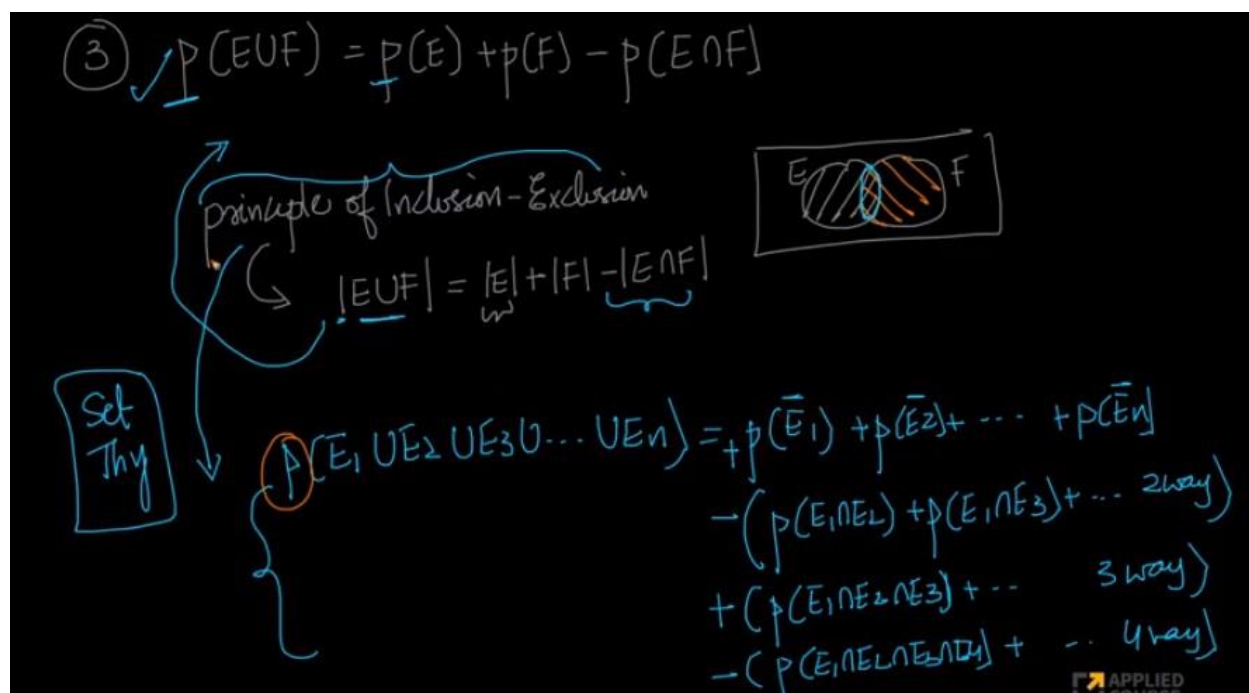 ③ p(E∪F) = p(E) + p(F) - p(E∩F]
principle of Inclusion-Exclusion
E F
|E∪F| = |E| + |F| - |E∩F|
Set
Thy
p(E₁ ∪E₂ ∪E₃∪... ∪En) = +p(Ē₁) + p(Ē2) + .... + p(Ēn]
-(p(E₁∩E₂) + p(E₁∩E3) + ... 2way)
+(p(E₁∩E₂∩E3) + ... 3 way)
-(p(E₁∩E₂∩E₃∩E4] + ... 4way)
APPLIED
COURSE